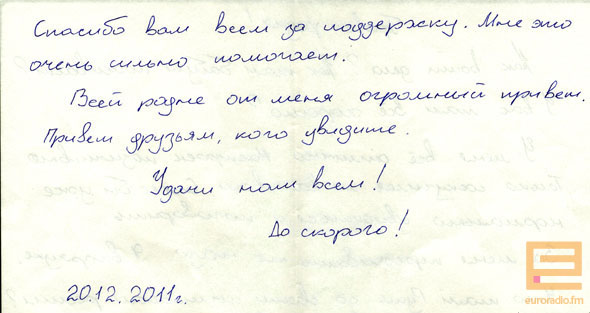 Спасибо вам всем за поддержку. Мне это
очень сильно помогает.
Всей родне от меня огромный привет.
Привет друзьям, кого увидите.
Удачи нам всем!
До скорого!
20.12.2011г.
euroradio.fm